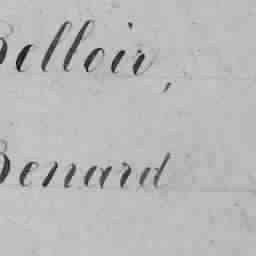 Belloir,
Benard